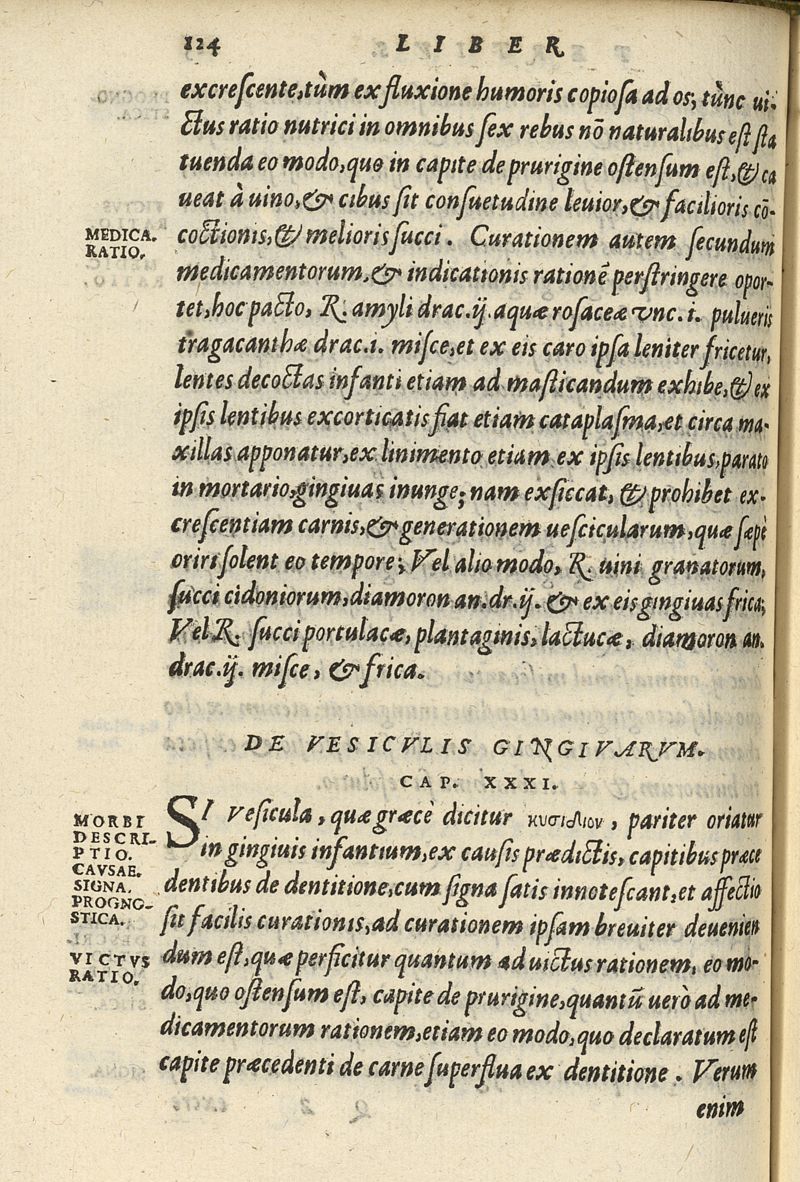 124 LIBER
excreſcente, tùm ex fluxione humoris copioſa ad os, tùnc ui-
ctus ratio nutrici in omnibus ſex rebus nō naturalibus eſt ſta
tuenda eo modo, quo in capite de prurigine oſtenſum eſt, & ca
ueat à uino, & cibus ſit conſuetudine leuior, & facilioris cō-
MEDICA.
RATIO.
coctionis, & melioris ſucci. Curationem autem ſecundum
medicamentorum, & indicationis rationē perſtringere opor-
tet, hoc pacto, ℞. amyli drac.ij. aquæ roſaceæ vnc.i. pulueris
tragacanthæ drac.i. miſce, et ex eis caro ipſa leniter fricetur,
lentes decoctas infanti etiam ad maſticandum exhibe, & ex
ipſis lentibus excorticatis fiat etiam cataplaſma, et circa ma-
xillas apponatur, ex linimento etiam ex ipſis lentibus, parato
in mortario, gingiuas inunge; nam exſiccat, & prohibet ex-
creſcentiam carnis, & generationem ueſcicularum, quæ ſæpè
oriri ſolent eo tempore; Vel alio modo, ℞. uini granatorum,
ſucci cidoniorum, diamoron an. dr.ij. & ex eis gingiuas frica;
Vel ℞. ſucci portulacæ, plantaginis, lactucæ, diamoron an.
drac.ij. miſce, & frica.
DE VESICVLIS GINGIVARVM.
CAP. XXXI.
MORBI
DESCRI-
PTIO.
CAVSAE.
SIGNA.
PROGNO-
STICA.
SI Veſicula, quæ græcè dicitur κυσίδιον, pariter oriatur
in gingiuis infantium, ex cauſis prædictis, capitibus præce
dentibus de dentitione, cum ſigna ſatis innoteſcant, et affectio
ſit facilis curationis, ad curationem ipſam breuiter deuenien
VICTVS
RATIO.
dum eſt, quæ perficitur quantum ad uictus rationem, eo mo-
do, quo oſtenſum eſt, capite de prurigine, quantū uerò ad me-
dicamentorum rationem, etiam eo modo, quo declaratum eſt
capite præcedenti de carne ſuperflua ex dentitione. Verum
enim